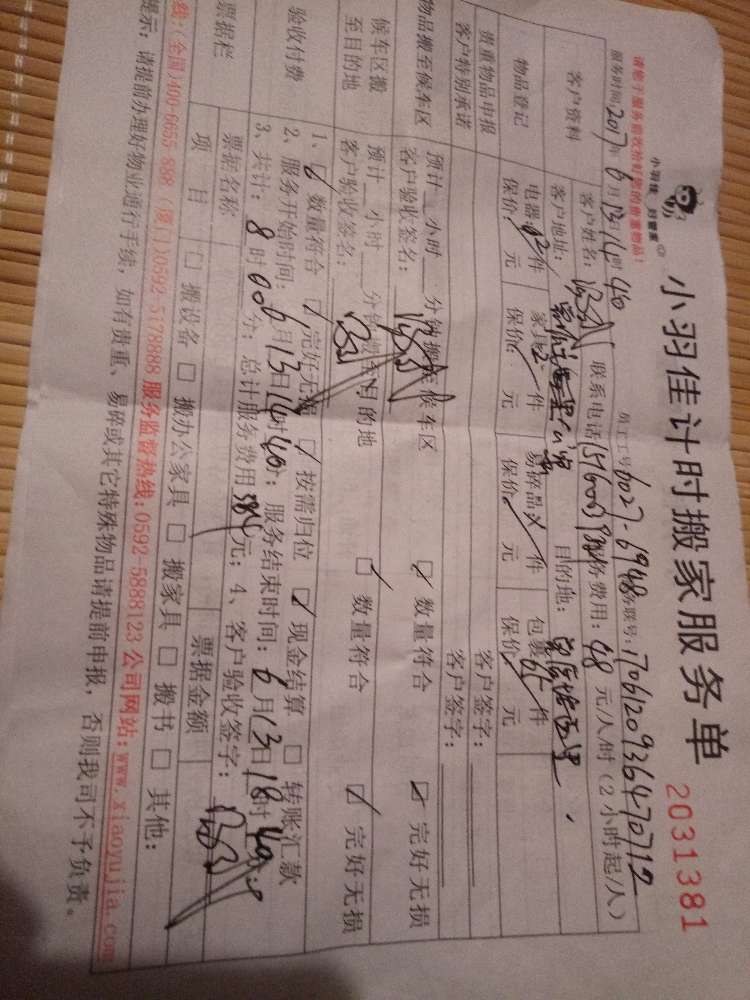 请您于服务前收拾好您的贵重物品！
小羽佳 好管家
小羽佳计时搬家服务单
2031381
员工工号6027-6948 务联号：170612093647071
服务时间：2017年6月13日14时40
客户资料
客户姓名： 联系电话 服务费用：48元/人/时（2小时起/人）
客户地址： 目的地：
物品登记
电器：2件 家具2件 易碎品 件 包裹 件
保价： 元 保价： 元 保价： 元 保价： 元
贵重物品申报 客户签字：
客户特别承诺 客户签字：
物品搬至候车区
预计 小时 分钟搬至候车区 数量符合 完好无损
客户验收签名：
候车区搬至目的地
预计 小时 分钟搬至目的地 数量符合 完好无损
客户验收签名：
验收付费
1、数量符合 完好无损 按需归位 现金结算 转账汇款
2、服务开始时间：6月13日14时40分；服务结束时间：6月13日18时40
3、共计：8时00分；总计服务费用384元；4、客户验收签字：
票据栏
票据名称 票据金额
项目 搬设备 搬办公家具 搬家具 搬书 其他：
线：(全国)400-6655-888 (厦门)0592-5178888 服务监督热线：0592-5888123 公司网站：www.xiaoyujia.com
提示：请提前办理好物业通行手续，如有贵重、易碎或其它特殊物品请提前申报，否则我司不予负责。